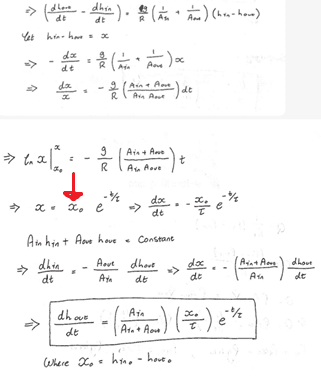 ⇒ (dhout/dt - dhin/dt) = g/R (1/Ain + 1/Aout) (hin - hout)
Let hin - hout = x
⇒ - dx/dt = g/R (1/Ain + 1/Aout) x
⇒ dx/x = - g/R (Ain + Aout / Ain Aout) dt
⇒ ln x |x0 x = - g/R (Ain + Aout / Ain Aout) t
⇒ x = x0 e^-t/τ ⇒ dx/dt = - x0/τ e^-t/τ
Ain hin + Aout hout = Constant
⇒ dhin/dt = - Aout/Ain dhout/dt ⇒ dx/dt = - (Ain + Aout / Ain) dhout/dt
⇒ dhout/dt = (Ain / Ain + Aout) (x0/τ) e^-t/τ
Where x0 = hin0 - hout0